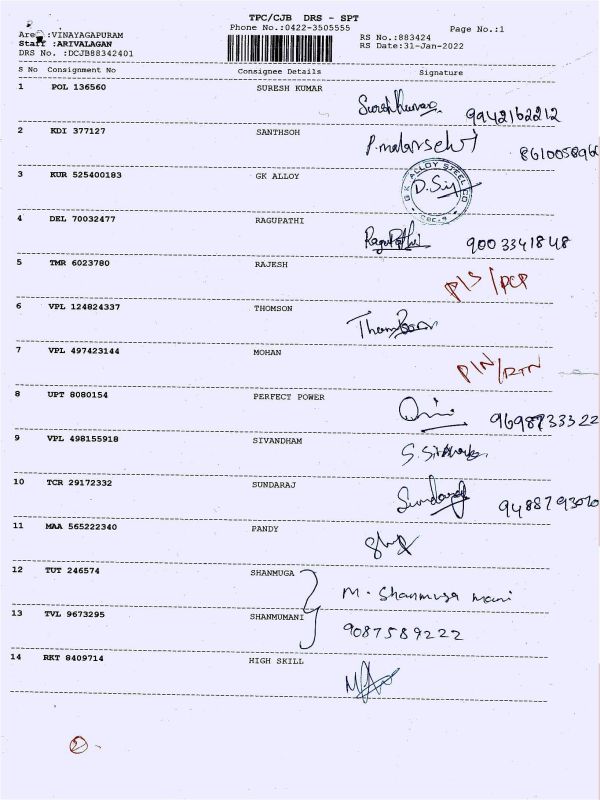 TPC/CJB DRS - SPT
Phone No.:0422-3505555 Page No.:1
Area :VINAYAGAPURAM RS No.:883424
Staff :ARIVALAGAN RS Date:31-Jan-2022
DRS No. :DCJB88342401
S No Consignment No Consignee Details Signature
1 POL 136560 SURESH KUMAR
Sureshkumar 9942162212
2 KDI 377127 SANTHSOH P.malarselvi
8610058966
3 KUR 525400183 GK ALLOY
G K ALLOY STEEL CO
CBE-9
4 DEL 70032477 RAGUPATHI
Ragupathi 9003341848
5 TMR 6023780 RAJESH
6 VPL 124824337 THOMSON
7 VPL 497423144 MOHAN
8 UPT 8080154 PERFECT POWER
9698733322
9 VPL 498155918 SIVANDHAM
10 TCR 29172332 SUNDARAJ
Sundaraj
11 MAA 565222340 PANDY
12 TUT 246574 SHANMUGA
M. Shanmuga mani
13 TVL 9673295 SHANMUMANI
9087589222
14 RKT 8409714 HIGH SKILL
2